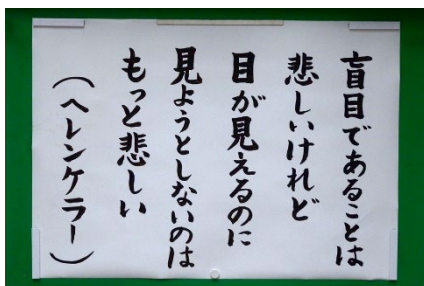 盲目であることは
悲しいけれど
目が見えるのに
見ようとしないのは
もっと悲しい
（ヘレンケラー）